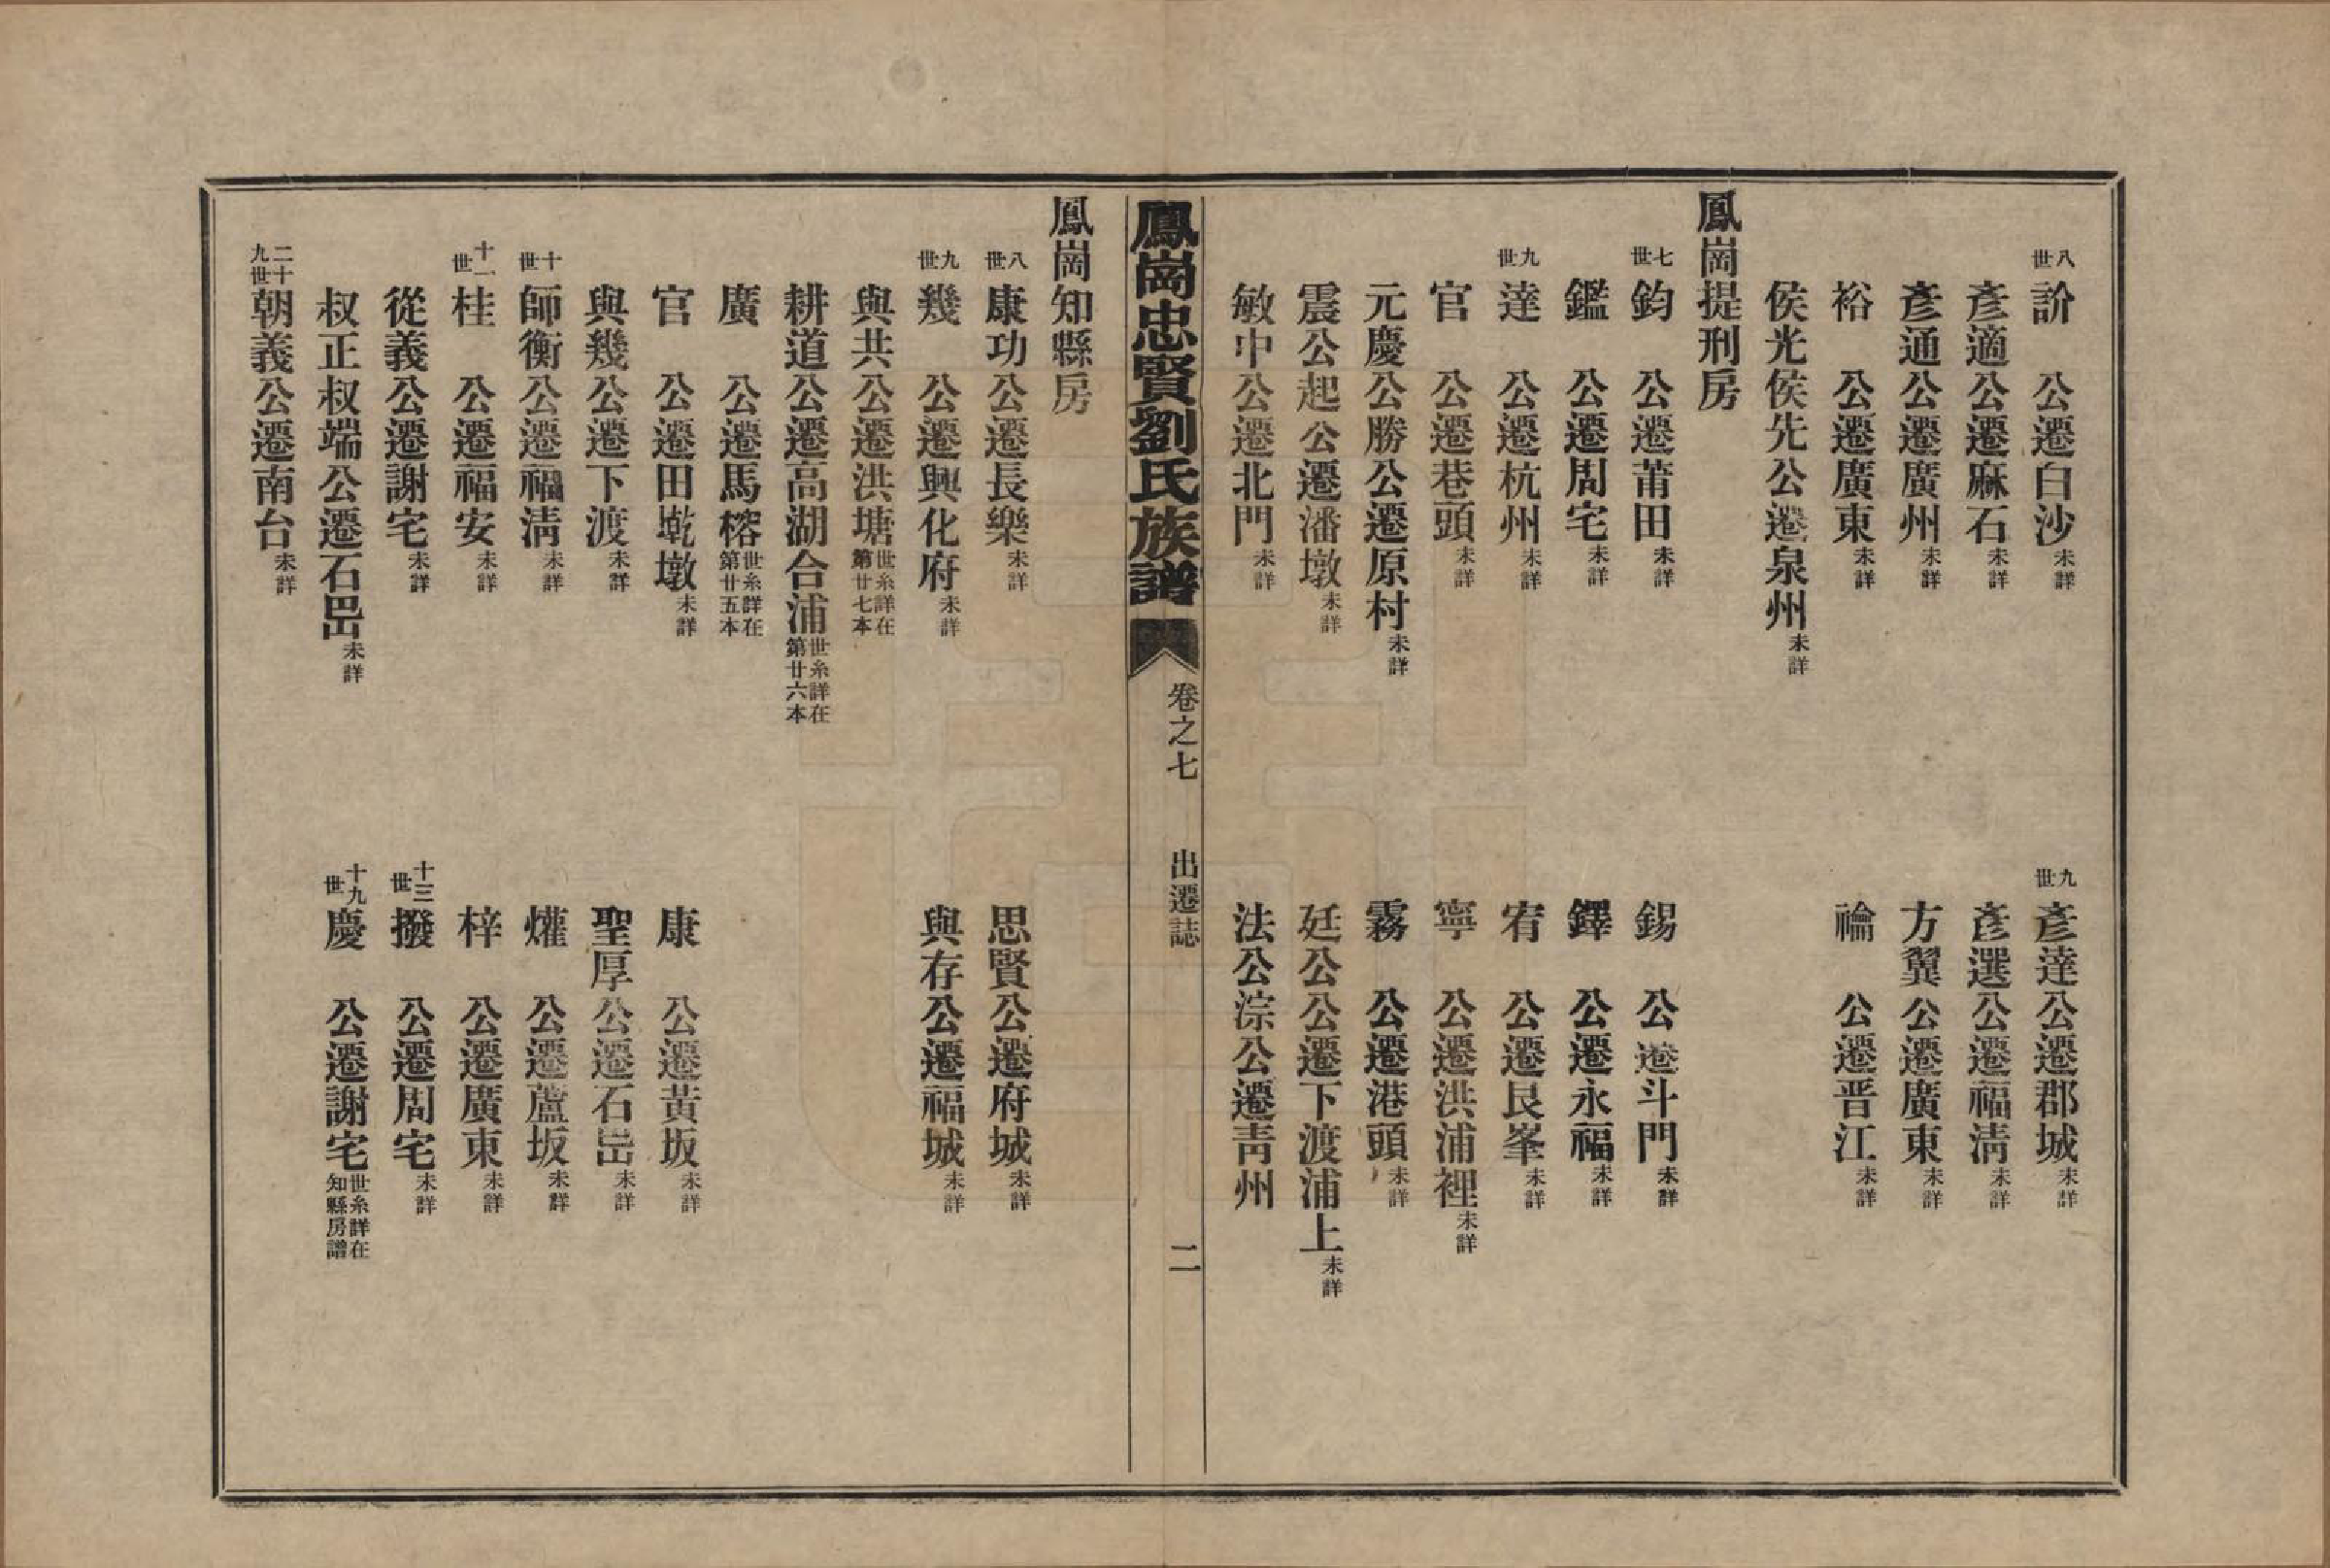 八世 訡 公遷白沙未詳
九世 彥達公遷郡城未詳
彥適公遷麻石未詳
彥選公遷福淸未詳
彥通公遷廣州未詳
方翼公遷廣東未詳
裕 公遷廣東未詳
禬 公遷晋江未詳
侯光侯先公遷泉州未詳
鳳崗提刑房
七世 鈞 公遷莆田未詳
錫 公遷斗門未詳
鑑 公遷周宅未詳
鐸 公遷永福未詳
九世 達 公遷杭州未詳
宥 公遷艮峯未詳
官 公遷巷頭未詳
寧 公遷洪浦裡未詳
元慶公勝公遷原村未詳
霧 公遷港頭未詳
震公起公遷潘墩未詳
廷公公遷下渡浦上未詳
敏中公遷北門未詳
法公淙公遷靑州
鳳崗忠賢劉氏族譜 卷之七 出遷誌 二
鳳崗知縣房
八世 康功公遷長樂未詳
思賢公遷府城未詳
九世 幾 公遷興化府未詳
與存公遷福城未詳
與共公遷洪塘世系詳在第廿七本
耕道公遷高湖合浦世系詳在第廿六本
廣 公遷馬榕世系詳在第廿五本
官 公遷田墘墩未詳
康 公遷黃坂未詳
與幾公遷下渡未詳
聖厚公遷石岊未詳
十世 師衡公遷福淸未詳
爟 公遷蘆坂未詳
十一世 桂 公遷福安未詳
梓 公遷廣東未詳
從義公遷謝宅未詳
十三世 撥 公遷周宅未詳
叔正叔端公遷石岊未詳
十九世 慶 公遷謝宅世系詳在知縣房譜
二十九世 朝義公遷南台未詳